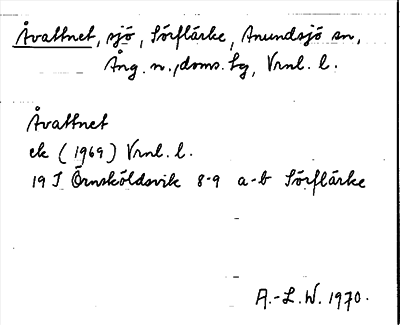 Åvattnet, sjö, Sörflärke, Anundsjö sn,
Ång. n., doms. hg, Vrnl. l.
Åvattnet
ek (1969) Vrnl. l.
19 J Örnsköldsvik 8-9 a-b Sörflärke
A.-L.W. 1970.